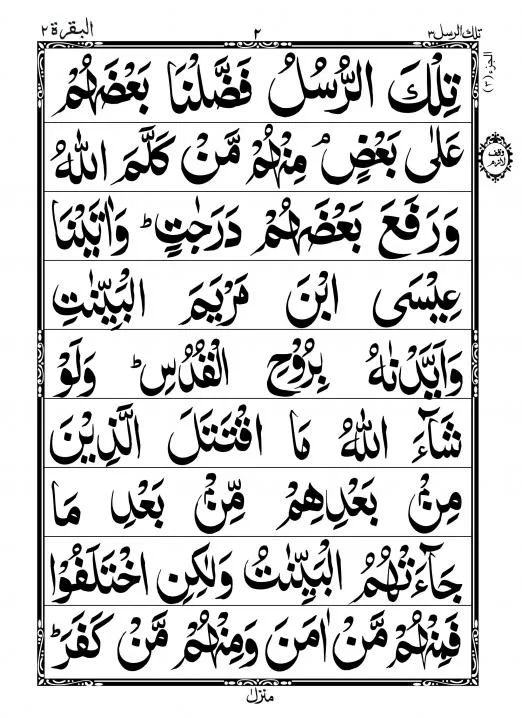 تلك الرسل ٣ ٢ البقرة ٢
الجزء (٣)
تِلْكَ الرُّسُلُ فَضَّلْنَا بَعْضَهُمْ
عَلٰى بَعْضٍ ۘ مِنْهُمْ مَّنْ كَلَّمَ اللّٰهُ
وقف لازم
وَرَفَعَ بَعْضَهُمْ دَرَجٰتٍ ؕ وَاٰتَيْنَا
عِيْسَى ابْنَ مَرْيَمَ الْبَيِّنٰتِ
وَاَيَّدْنٰهُ بِرُوْحِ الْقُدُسِ ؕ وَلَوْ
شَآءَ اللّٰهُ مَا اقْتَتَلَ الَّذِيْنَ
مِنْۢ بَعْدِهِمْ مِّنْۢ بَعْدِ مَا
جَآءَتْهُمُ الْبَيِّنٰتُ وَلٰكِنِ اخْتَلَفُوْا
فَمِنْهُمْ مَّنْ اٰمَنَ وَمِنْهُمْ مَّنْ كَفَرَ ؕ
منزل